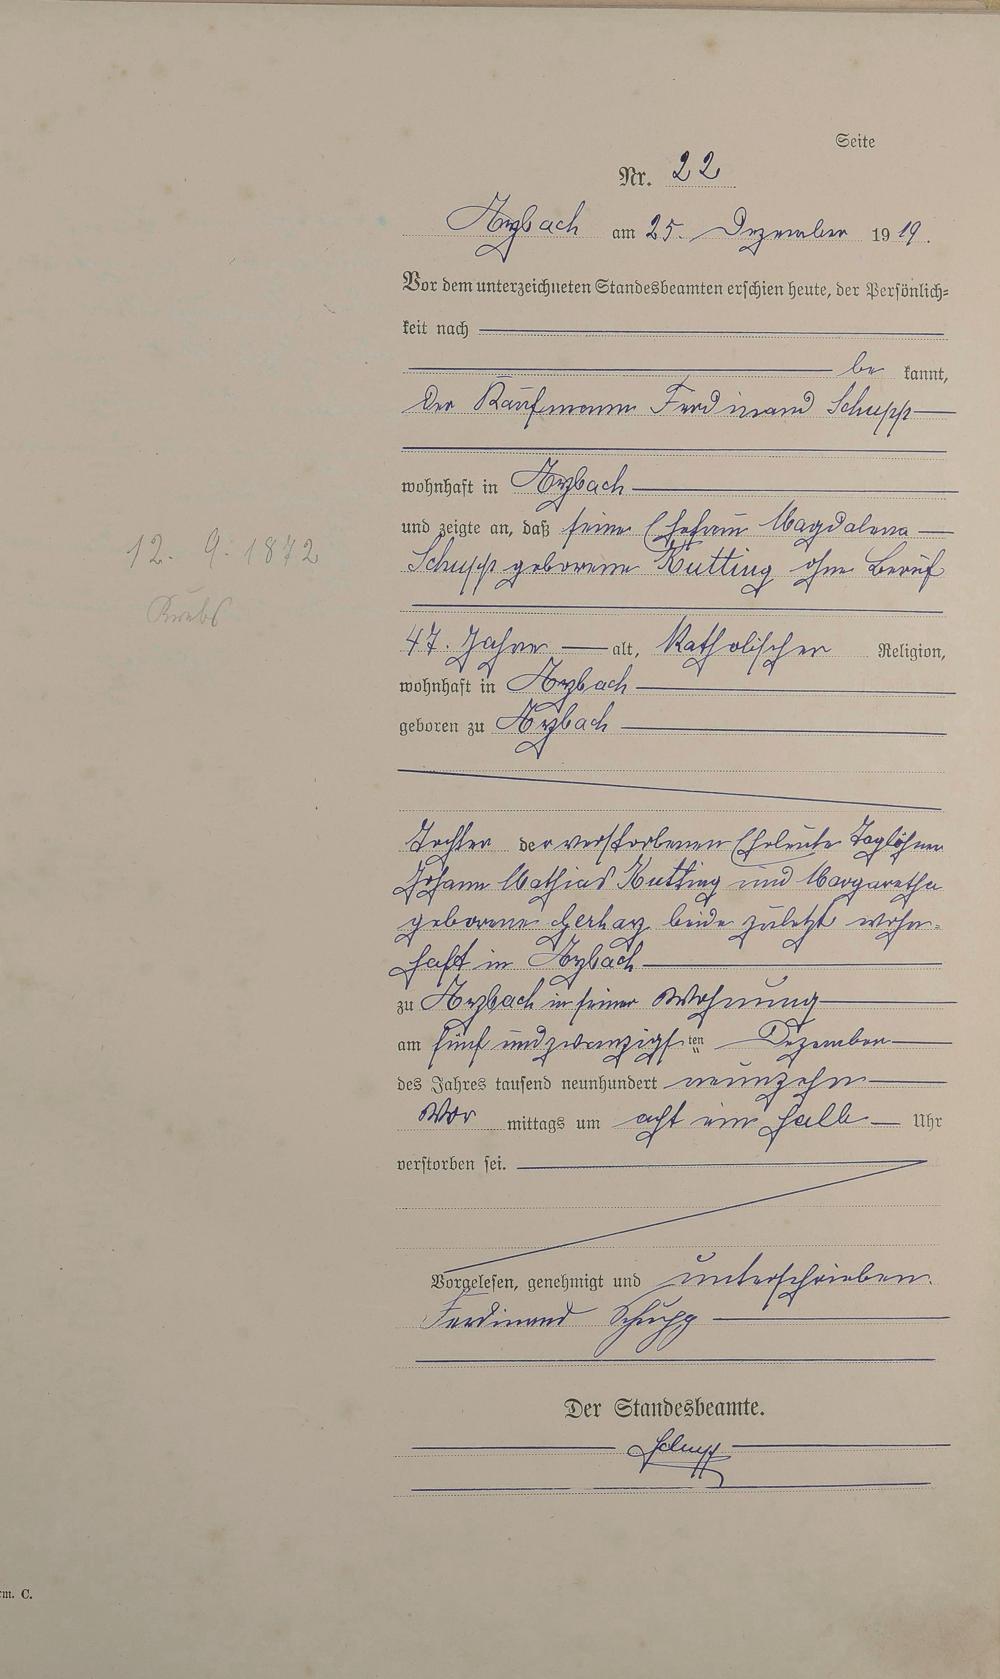 Seite
Nr. 22
Arzbach am 25. Dezember 1919.
Vor dem unterzeichneten Standesbeamten erschien heute, der Persönlich-
keit nach
be kannt,
der Kaufmann Ferdinand Schupp
wohnhaft in Arzbach
und zeigte an, daß seine Ehefrau Magdalena
Schupp geborene Kutting ohne Beruf
12. 9. 1872
Krebs
47. Jahre alt, Katholischer Religion,
wohnhaft in Arzbach
geboren zu Arzbach
Tochter der verstorbenen Eheleute Taglöhner
Johann Mathias Kutting und Margaretha
geborene Gerharz beide zuletzt wohn-
haft in Arzbach
zu Arzbach in seiner Wohnung
am fünf undzwanzigsten Dezember
des Jahres tausend neunhundert neunzehn
Vor mittags um acht ein halb Uhr
verstorben sei.
Vorgelesen, genehmigt und unterschrieben.
Ferdinand Schupp
Der Standesbeamte.
Schupp
rm. C.